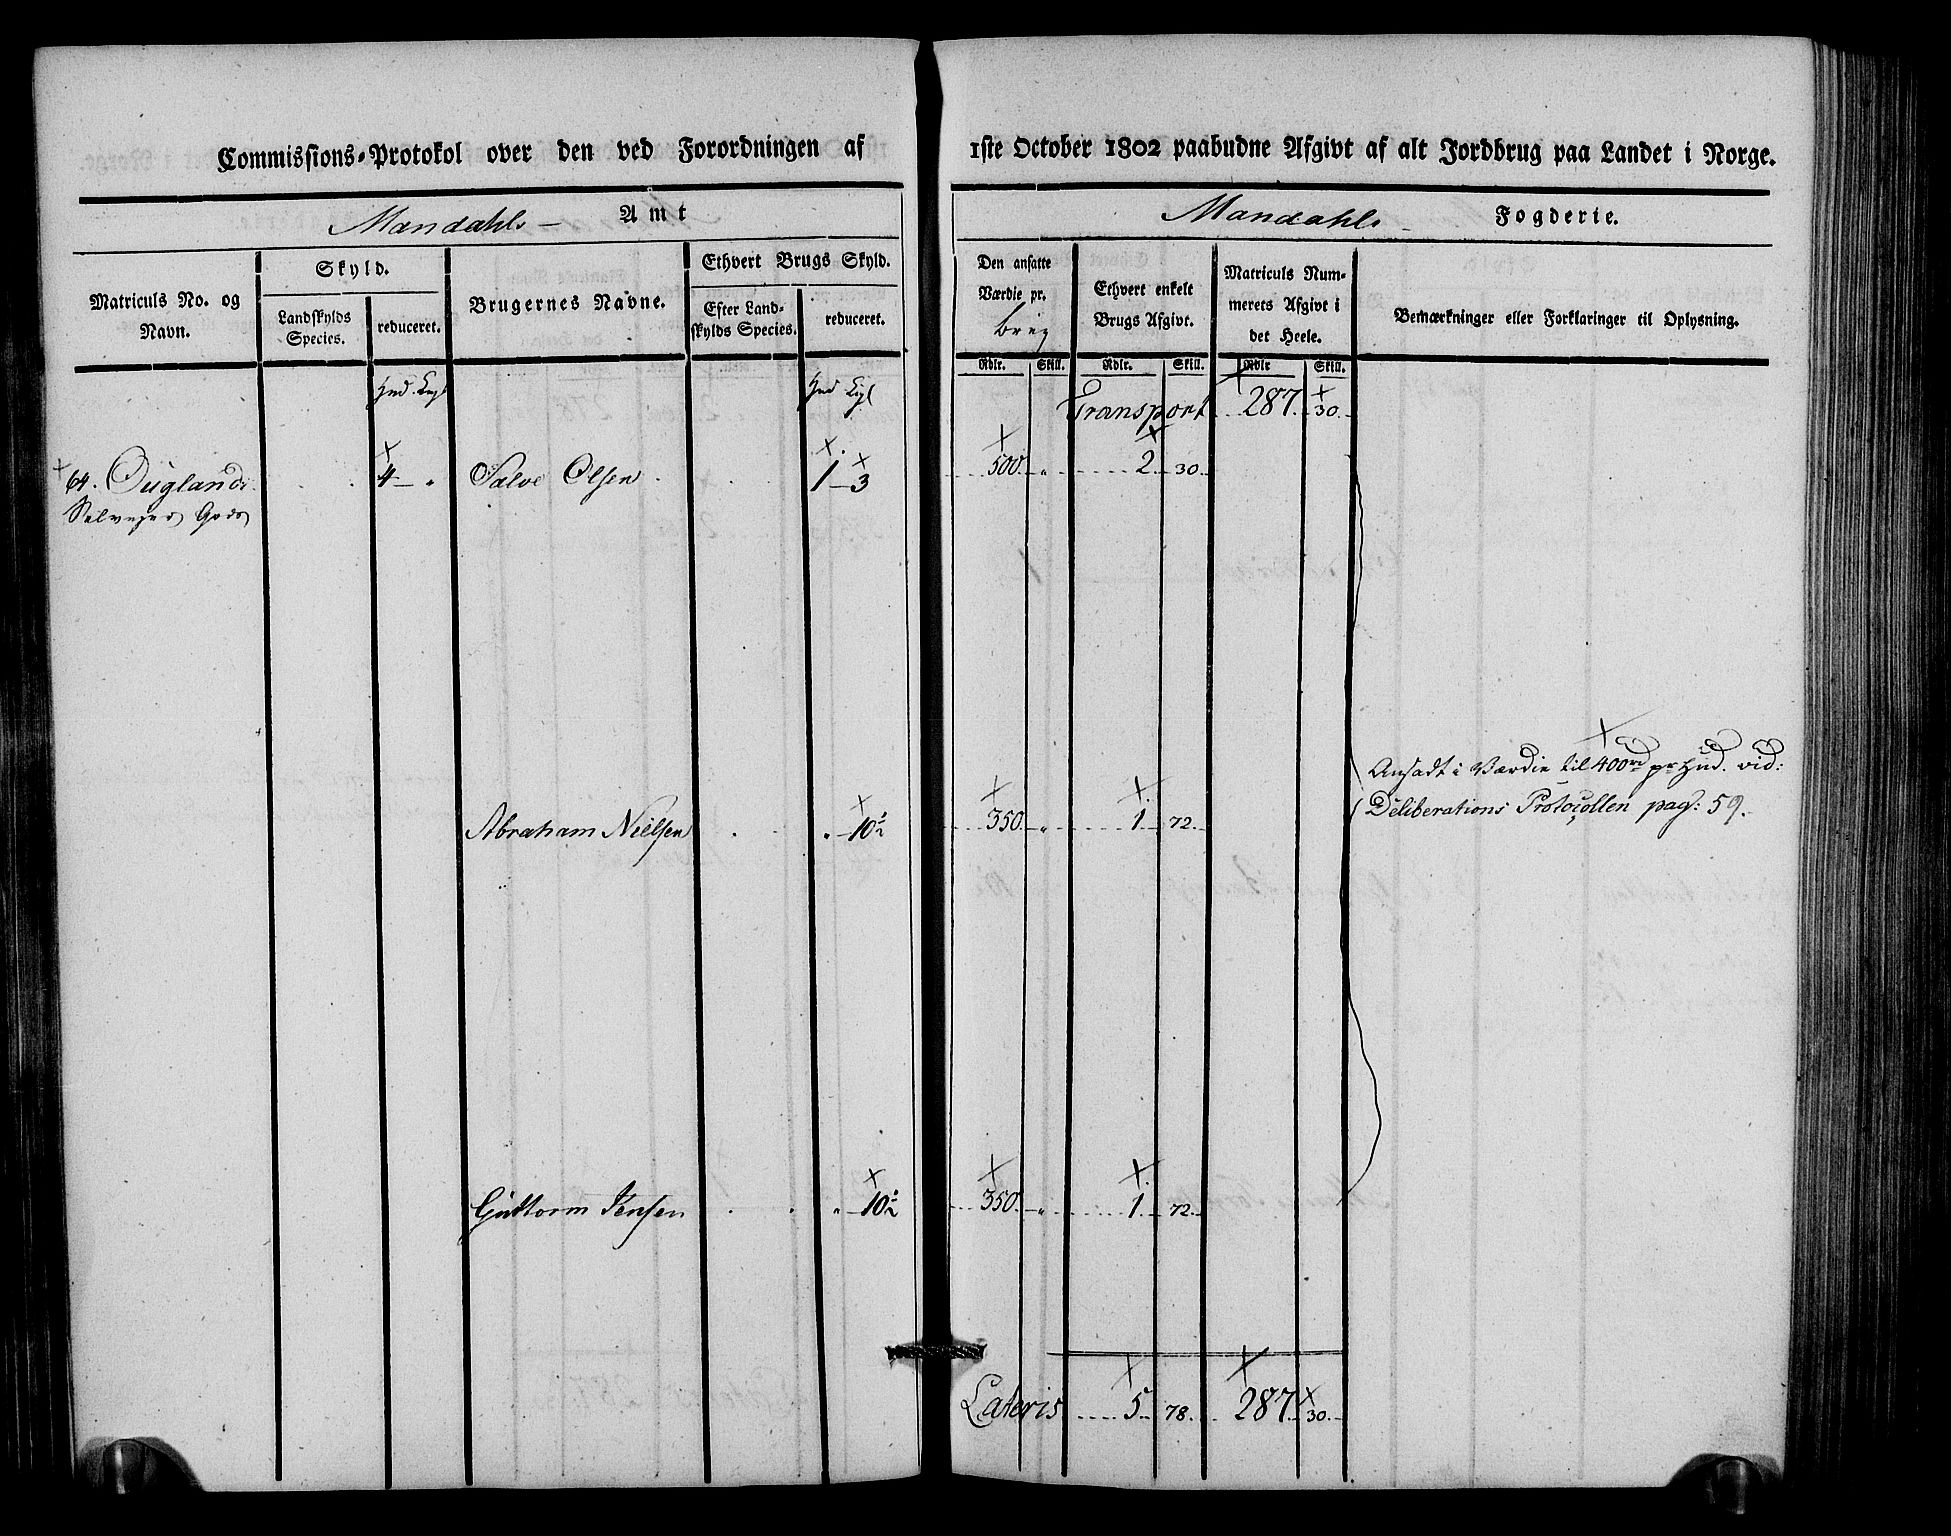 Commissions-Protokol over den ved Forordningen af 1ste October 1802 paabudne Afgivt af alt Jordbrug paa Landet i Norge.
Mandahls – Amt
Mandahls – Fogderie.
Matriculs No. og
Navn.
Skyld.
Landskylds
Species.
reduceret.
Brugernes Navne.
Ethvert Brugs Skyld.
Efter Land-
skylds Species.
reduceret.
Den ansatte
Værdie pr.
brug
Ethvert enkelt
Brugs Afgivt.
Matriculs Num-
merets Afgivt i
det Heele.
Bemærkninger eller Forklaringer til Oplysning.
Rdlr. Skill. Rdlr. Skill. Rdlr Skill.
Hud. Hud
Transport 287. 30.
64. Ougland 4 – „ Salve Olsen 1 – 3 500. „ 2. 30.
Selveyer Gods
Ansadt i Værdie til 400rd pr Hud. vid:
Deliberations Protocollen pag: 59.
Abraham Nielsen „ – 10½ 350. „ 1. 72.
Guttorm Jensen „ – 10½ 350. „ 1. 72.
Lateris 5. 78. 287. 30.